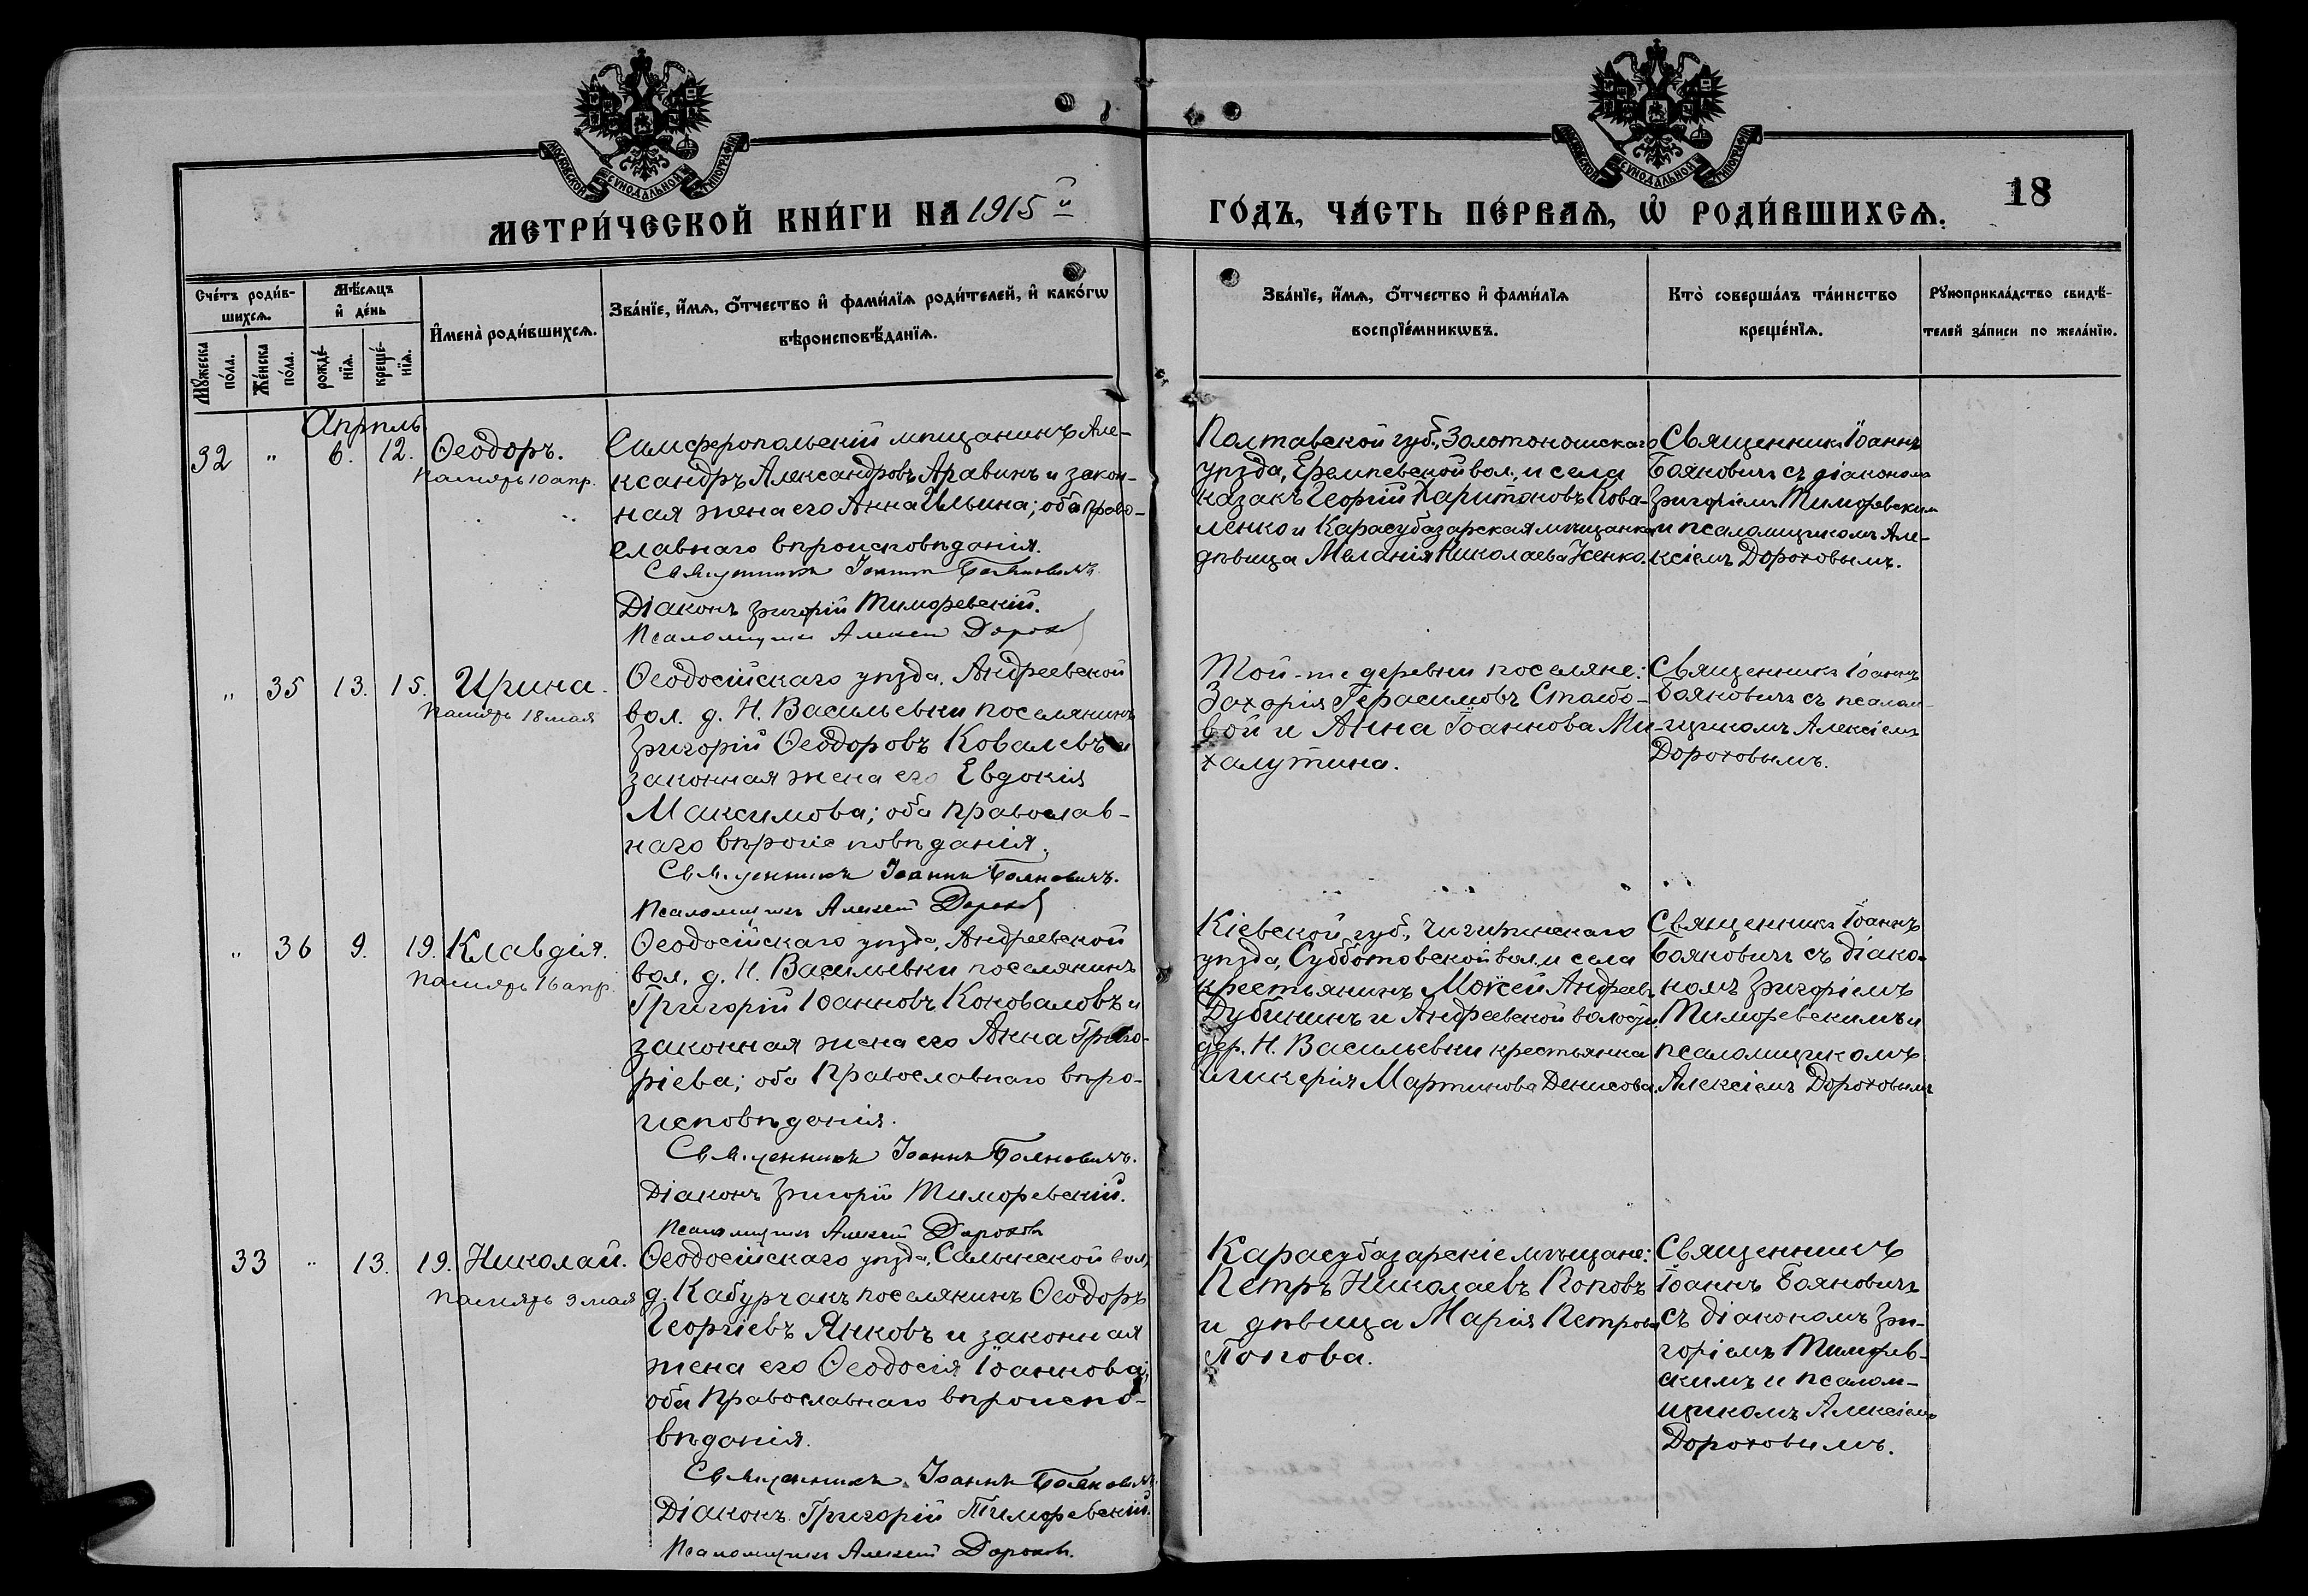 МОСКОВСКОЙ СѴНОДАЛЬНОЙ ТИПОГРАФІИ
МОСКОВСКОЙ СѴНОДАЛЬНОЙ ТИПОГРАФІИ
МЕТРИ́ЧЕСКОЙ КНИ́ГИ НА 1915 й
ГО́ДЪ, ЧА́СТЬ ПЕ́РВАѦ, Ѽ РОДИ́ВШИХСѦ.
18
Сче́тъ роди́в-
шихсѧ.
Мꙋжеска по́ла.
Же́нска по́ла.
Мѣ́сяцъ
и҆ де́нь
рожде́-
нїѧ.
креще́-
нїѧ.
И҆мена̀ роди́вшихсѧ.
Зва́нїе, и҆́мѧ, ѻ҆́тчество и҆ фами́лїѧ роди́телей, и҆ како́гѡ
вѣроисповѣ́данїѧ.
Зва́нїе, и҆́мѧ, ѻ҆́тчество и҆ фами́лїѧ
воспрїе́мникѡвъ.
Кто̀ соверша́лъ та́инство
креще́нїѧ.
Рꙋкоприкла́дство свидѣ́-
телей за́писи по жела́нїю.
Апрѣль
32 " 6. 12. Ѳеодоръ.
Память 10 апр.
Симферопольскій мѣщанинъ Але-
ксандръ Александровъ Аравинъ и закон-
ная жена его Анна Ильина; оба право-
славнаго вѣроисповѣданія.
Священникъ Іоаннъ Бояновичъ.
Діаконъ Григорій Тиморевскій.
Псаломщикъ Алексій Дорохов
Полтавской губ., Золотоношскаго
уѣзда, Еремѣевской вол. и села
казакъ Георгій Харитоновъ Кова-
ленко и Карасубазарская мѣщанка
дѣвица Меланія Николаева Исенко.
Священникъ Іоаннъ
Бояновичъ съ діакономъ
Григоріемъ Тиморевским
и псаломщикомъ Але-
ксіемъ Дороховымъ.
" 35 13. 15. Ирина.
Память 18 мая
Ѳеодосійскаго уѣзда, Андреевской
вол. д. Н. Васильевки поселянинъ
Григорій Ѳеодоровъ Ковалевъ и
законная жена его Евдокія
Максимова; оба православ-
наго вѣроисповѣданія.
Священникъ Іоаннъ Бояновичъ.
Псаломщикъ Алексій Дорохов
Той-же деревни поселяне:
Захарія Герасимовъ Столбо-
вой и Анна Іоаннова Ми-
халутина.
Священникъ Іоаннъ
Бояновичъ съ псалом-
щикомъ Алексіемъ
Дороховымъ.
" 36 9. 19. Клавдія.
Память 16 апр.
Ѳеодосійскаго уѣзда, Андреевской
вол. д. Н. Васильевки поселянинъ
Григорій Іоанновъ Коноваловъ и
законная жена его Анна Григо-
ріева; оба Православнаго вѣро-
исповѣданія.
Священникъ Іоаннъ Бояновичъ.
Діаконъ Григорій Тиморевскій.
Псаломщикъ Алексій Дорохов
Кіевской губ., Чигиринскаго
уѣзда, Субботовской вол. и села
крестьянинъ Моѵсей Андреевъ
Дубининъ и Андреевской волости
дер. Н. Васильевки крестьянка
Гликерія Мартинова Денисова.
Священникъ Іоаннъ
Бояновичъ съ діако-
номъ Григоріемъ
Тиморевскимъ и
псаломщикомъ
Алексіемъ Дороховымъ
33 " 13. 19. Николай.
Память 9 мая
Ѳеодосійскаго уѣзда, Салынской вол.
д. Кабурчакъ поселянинъ Ѳеодоръ
Георгіевъ Янковъ и законная
жена его Ѳеодосія Іоаннова;
оба Православнаго вѣроиспо-
вѣданія.
Священникъ Іоаннъ Бояновичъ.
Діаконъ Григорій Тиморевскій.
Псаломщикъ Алексій Дорохов.
Карасубазарскіе мѣщане:
Петръ Николаевъ Поповъ
и дѣвица Марія Петрова
Попова.
Священникъ
Іоаннъ Бояновичъ
съ діакономъ Гри-
горіемъ Тиморев-
скимъ и псалом-
щикомъ Алексіемъ
Дороховымъ.